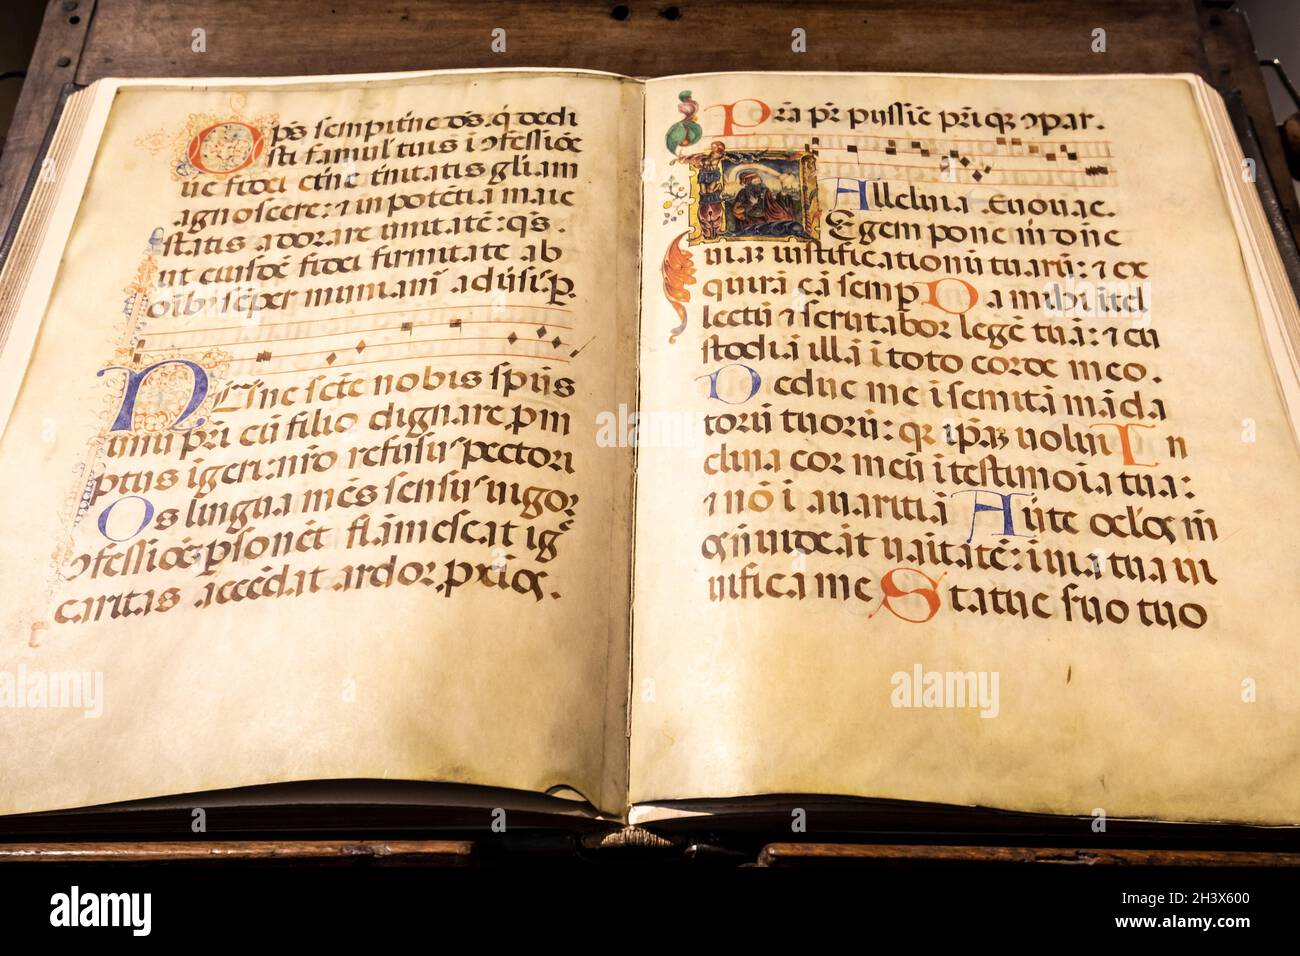 Op̄s sempitne ds̄. q̄ dedi
sti famul tuis i ↄfessiōe
ue fidei etne tinitatis gliam
agnoscere: ⁊ in potētia maie
statis adorare unitatē: qs̄.
ut eiusdē fidei firmitate ab
oīb' sēper muniam̄ adūsis. p.
Nunc scē nobis spūs
unū pri cū filio dignare pm
ptus igeri: nr̄o refusus pectori
Os lingua mēs sensus uigor
ↄfessiōe psonēt flāmescat igē
caritas accēdat ardor pxīos.
Pra pr̄ pijssie pri qꝫ ↄpar.
Alleluia Euouae.
Legem pone m̄ dn̄e
uiaꝫ iustificationū tuarū: ⁊ ex
quirā eā semp Da mihi ītel
lectū ⁊ scrutabor legē tuā: ⁊ cu
stodiā illā i toto corde meo.
Deduc me i semitā māda
torū tuorū: qꝫ ipāꝫ uolui In
clina cor meū i testimōia tua:
⁊ nō i auaritiā Aūte oclōs m̄
os ne uideāt uaītatē: i uia tua ui
uifica me Statue suo tuo
alamy
Image ID: 2H3X600
www.alamy.com